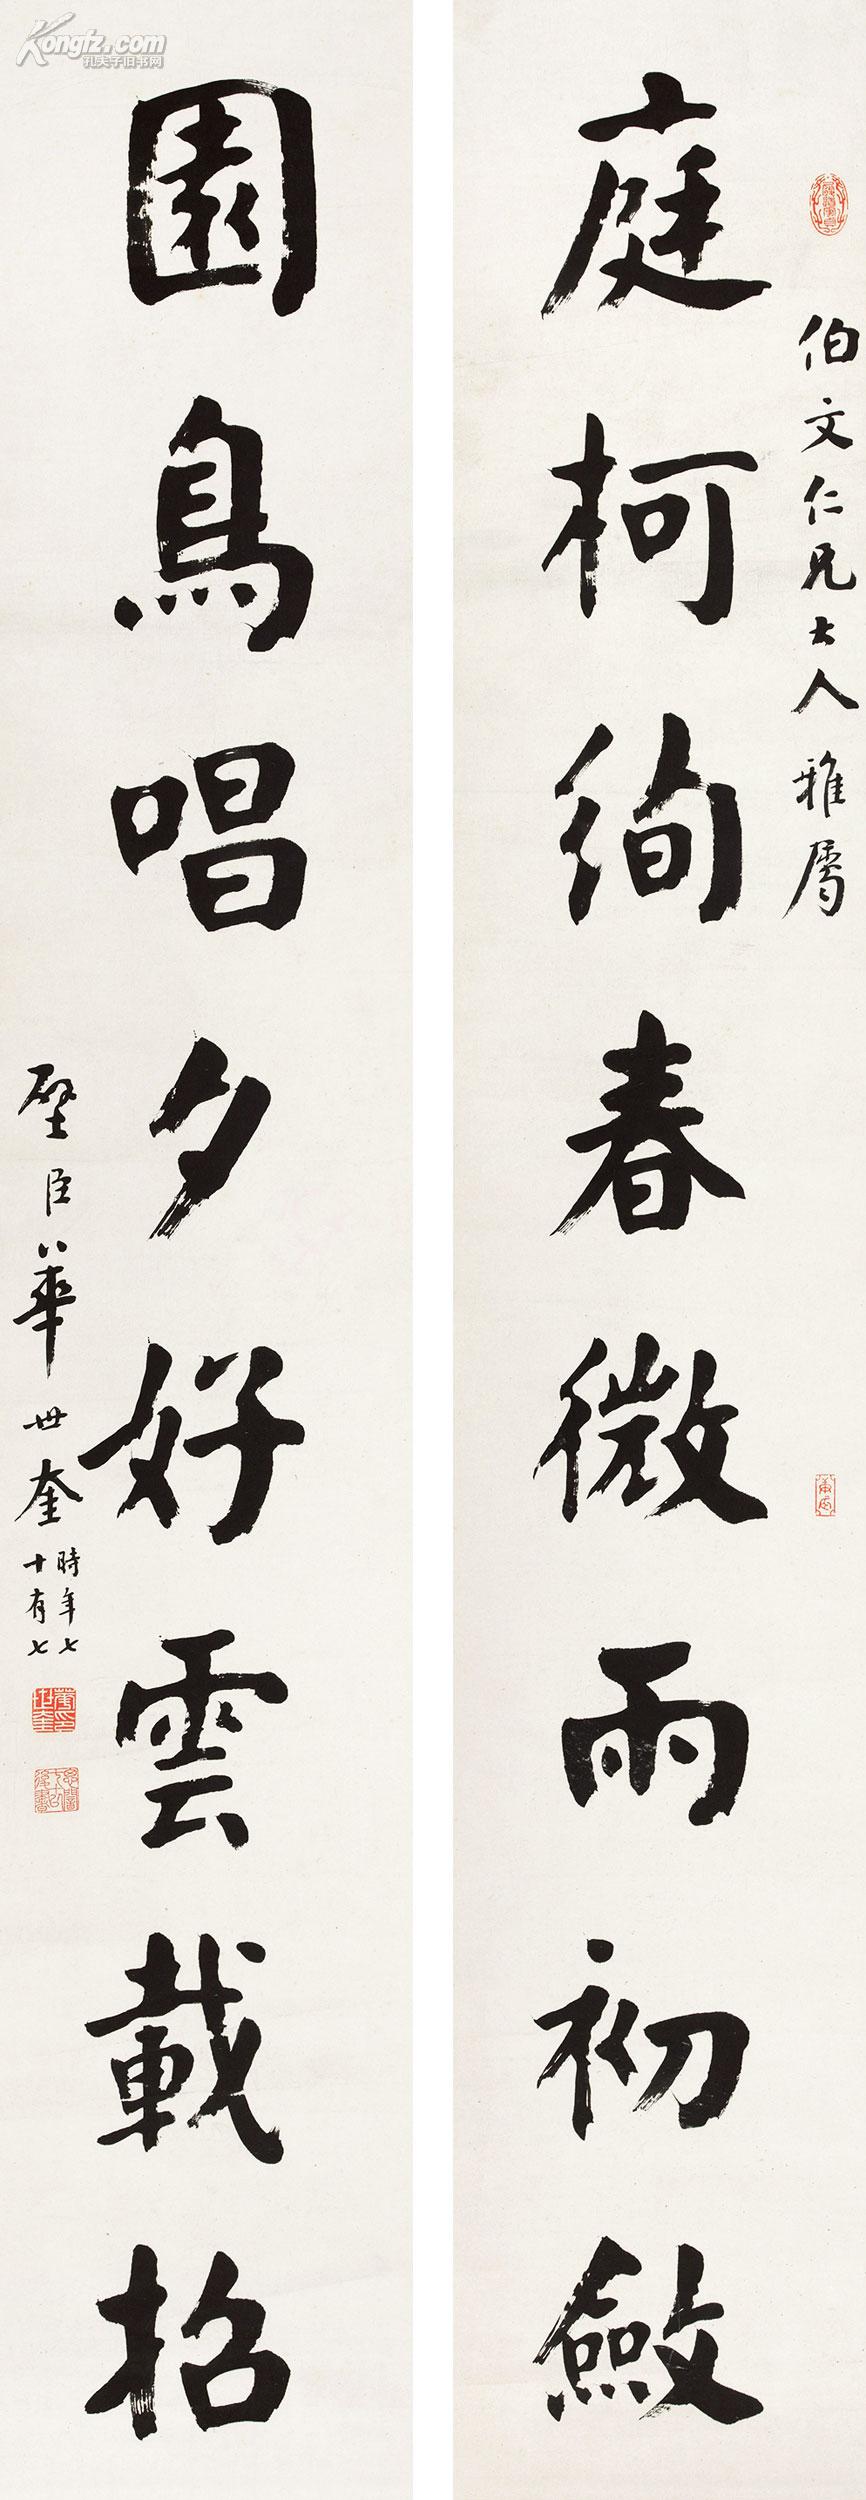 庭柯絢春微雨初斂
伯文仁兄大人雅屬
園鳥唱夕好雲載招
壁臣華世奎
時年七
十有七
華世奎印
Kongfz.com
孔夫子旧书网